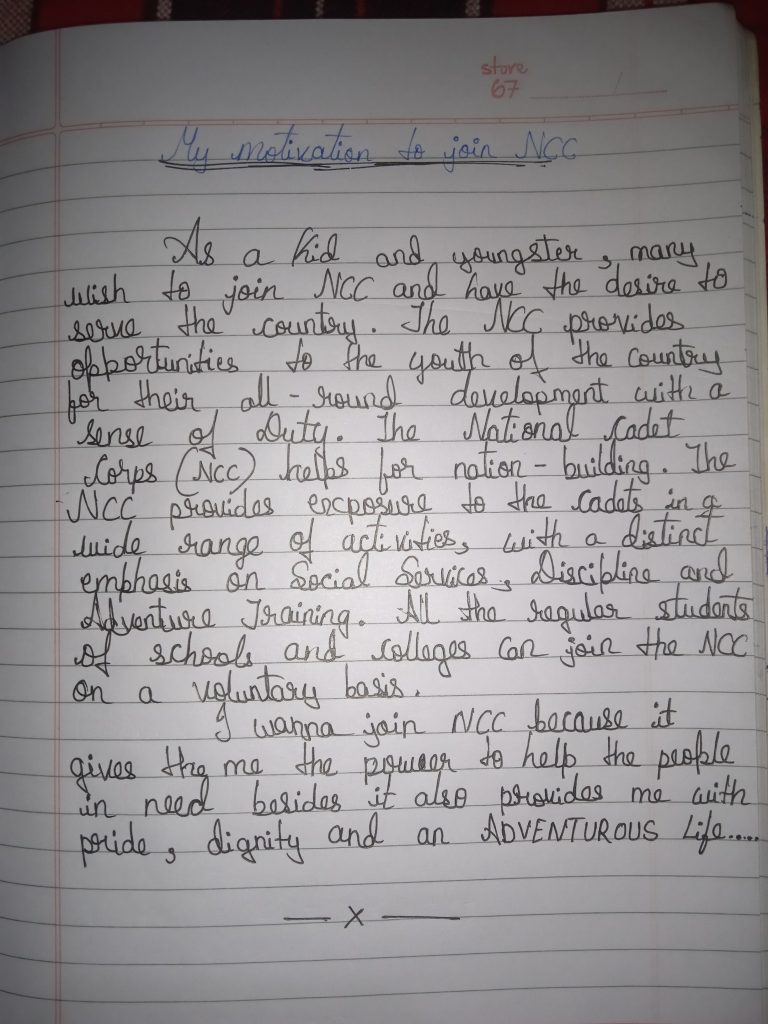 store
67
My motivation to join NCC
As a kid and youngster, many
wish to join NCC and have the desire to
serve the country. The NCC provides
opportunities to the youth of the country
for their all-round development with a
sense of Duty. The National Cadet
Corps (NCC) helps for nation-building. The
NCC provides exposure to the cadets in a
wide range of activities, with a distinct
emphasis on Social Services, Discipline and
Adventure Training. All the regular students
of schools and colleges can join the NCC
on a voluntary basis.
I wanna join NCC because it
gives the me the power to help the people
in need besides it also provides me with
pride, dignity and an ADVENTUROUS Life.....
— X —